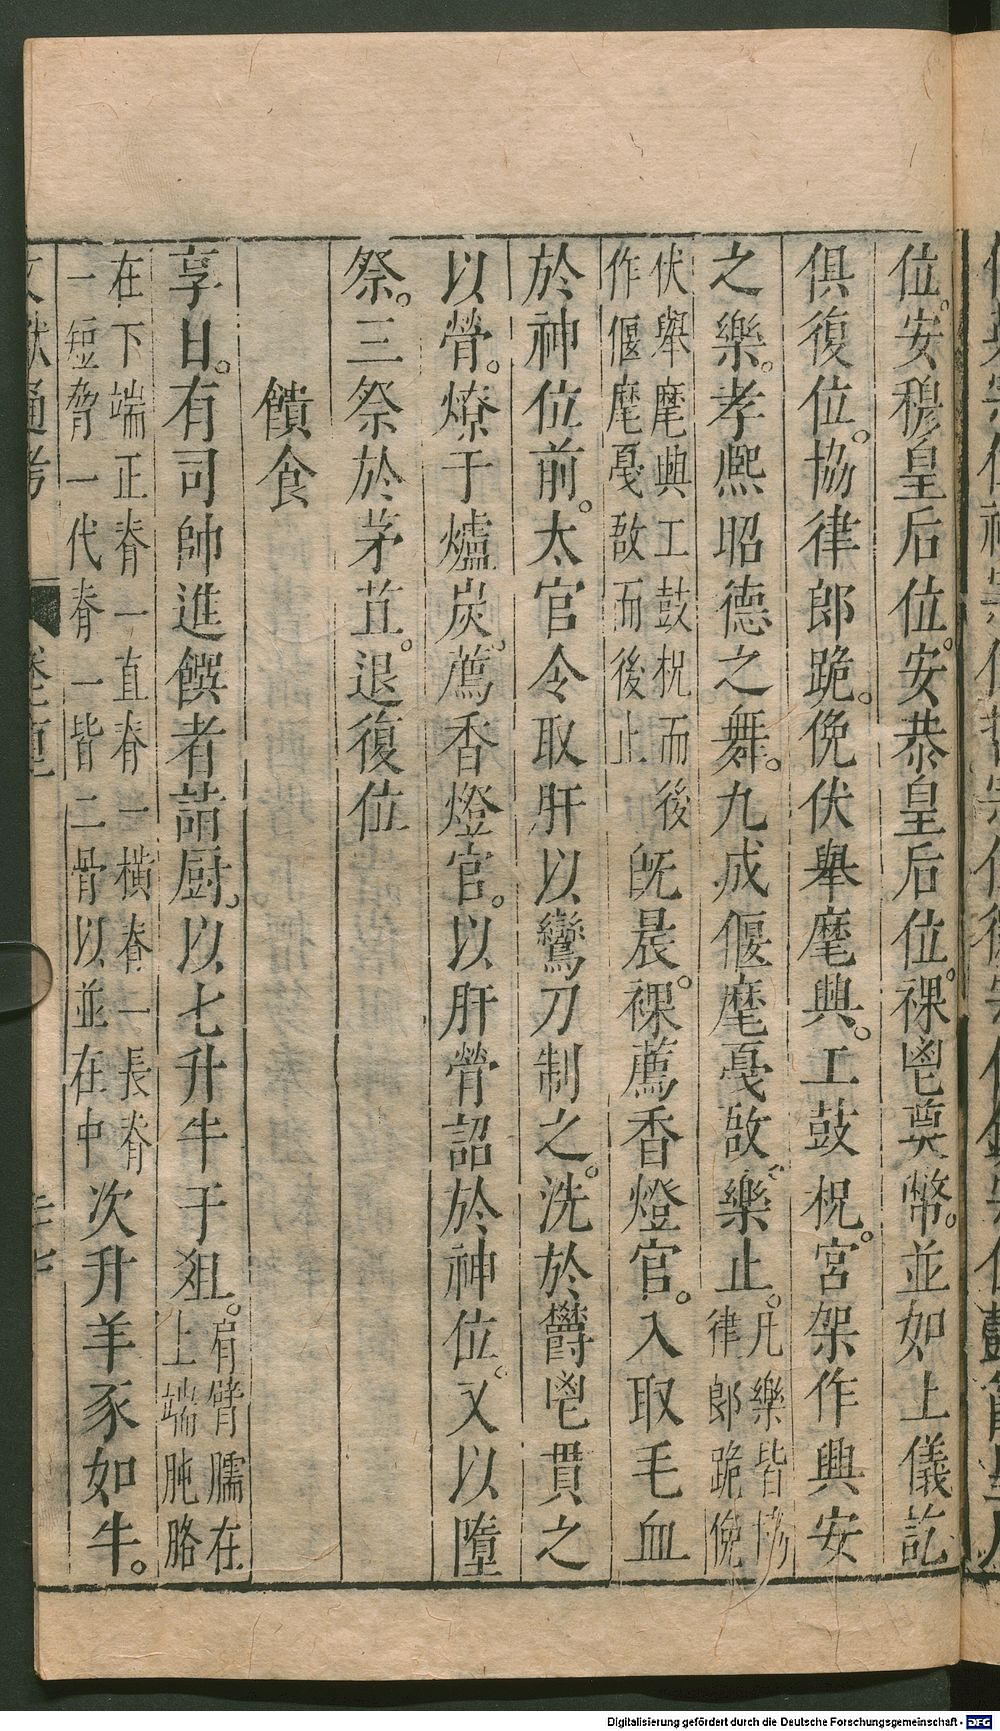 位。安穆皇后位。安恭皇后位。祼鬯奠幣。並如上儀訖
俱復位。協律郎跪。俛伏舉麾興。工鼓柷。宮架作興安
之樂。孝熈昭德之舞。九成偃麾戞敔。樂止。凡樂皆協
律郎跪俛
伏舉麾興工鼓柷而後
作偃麾戞敔而後止
旣晨。祼薦香燈官。入取毛血
於神位前。太官令取肝以鸞刀制之。洗於鬱鬯貫之
以膋。燎于爐炭。薦香燈官。以肝膋詔於神位。又以墮
祭。三祭於茅苴。退復位
饋食
享日。有司帥進饌者詣厨。以七升牛于俎。肩臂臑在
上端肫胳
在下端正脊一直脊一橫脊一長脅
一短脅一代脅一皆二骨以並在中
次升羊豕如牛。
文獻通考
Digitalisierung gefördert durch die Deutsche Forschungsgemeinschaft - DFG